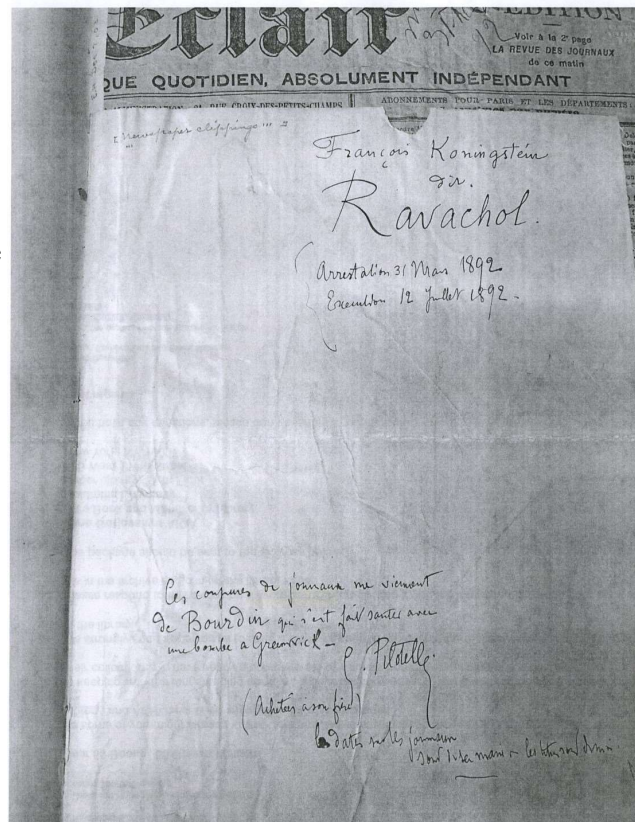 Éclair
Voir à la 2e page
LA REVUE DES JOURNAUX
de ce matin
QUE QUOTIDIEN, ABSOLUMENT INDÉPENDANT
RUE CROIX-DES-PETITS-CHAMPS
ABONNEMENTS POUR PARIS ET LES DÉPARTEMENTS
newspaper clippings
François Koningstein
dit.
Ravachol.
Arrestation 31 Mars 1892
Execution 12 Juillet 1892.
Ces coupures de journaux me viennent
de Bourdin qui s'est fait sauter avec
une bombe a Greenwich —
G. Pilotelle
(Achetées à son frère)
les dates sur les journaux
sont de sa main